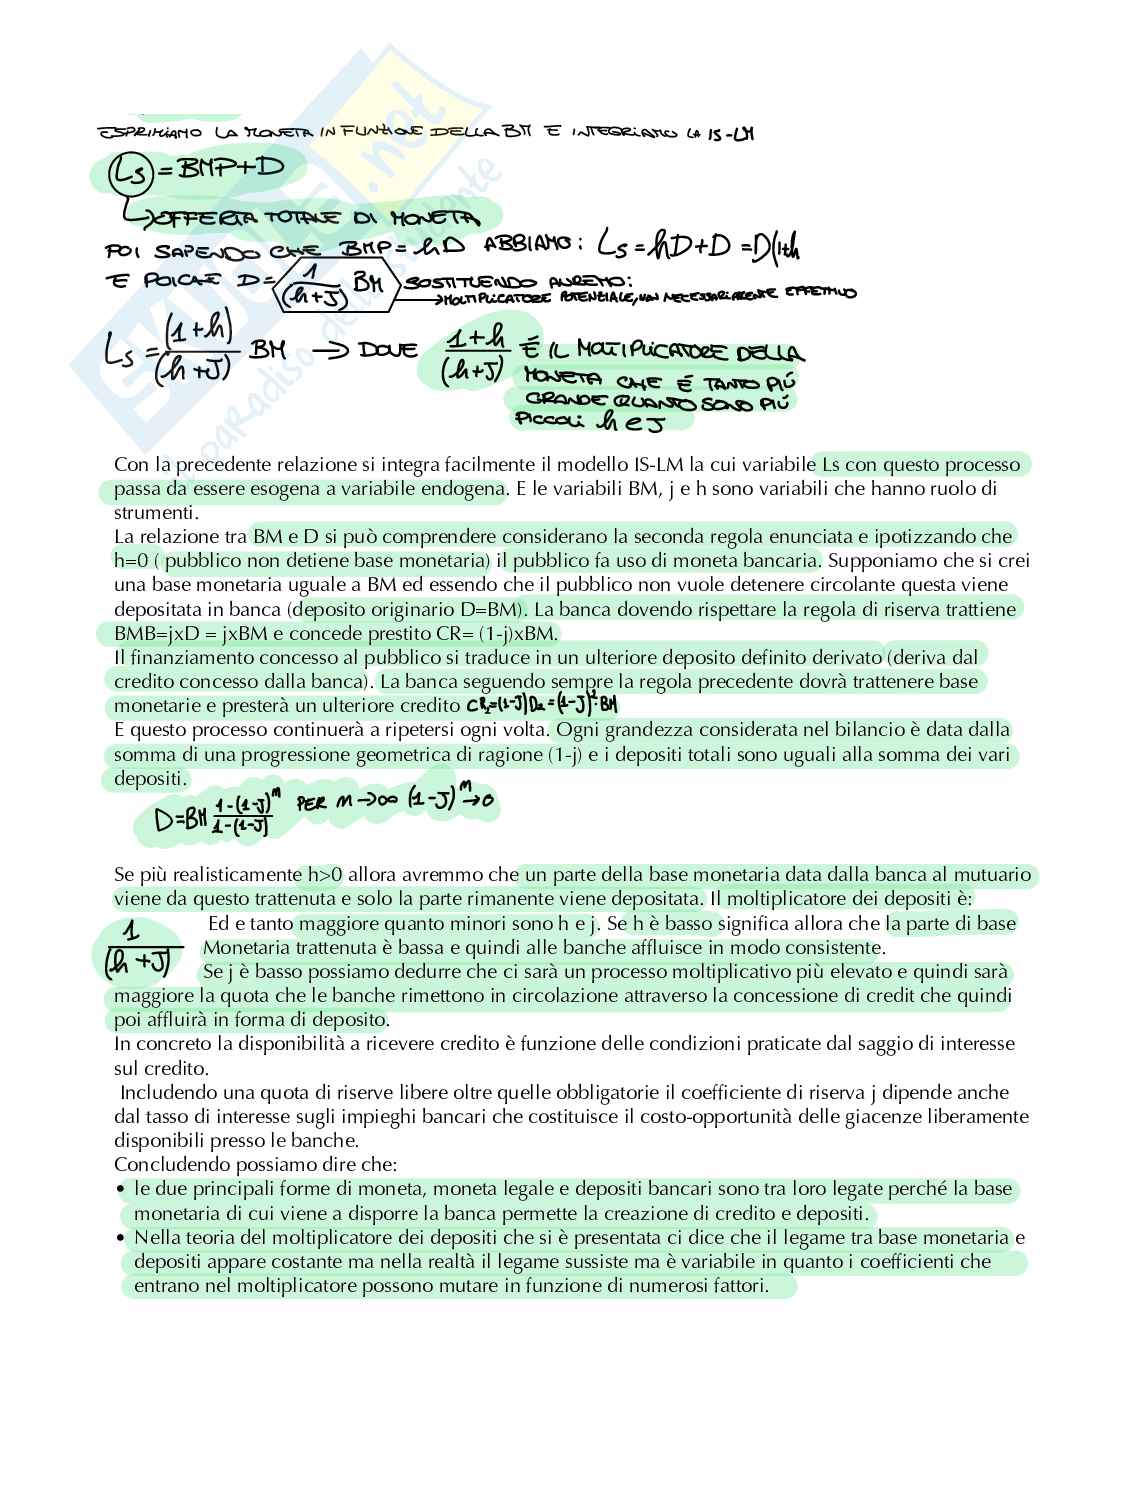 ESPRIMIAMO LA MONETA IN FUNZIONE DELLA BM E INTEGRIAMO LA IS-LM
Ls = BMP+D
OFFERTA TOTALE DI MONETA
POI SAPENDO CHE BMP = hD ABBIAMO: Ls = hD+D = D(1+h
E POICHÈ D = 1/(h+J) BM SOSTITUENDO AVREMO:
MOLTIPLICATORE POTENZIALE, NON NECESSARIAMENTE EFFETTIVO
Ls = (1+h)/(h+J) BM → DOVE 1+h/(h+J) È IL MOLTIPLICATORE DELLA
MONETA CHE È TANTO PIÚ
GRANDE QUANTO SONO PIÚ
PICCOLI h e J
Con la precedente relazione si integra facilmente il modello IS-LM la cui variabile Ls con questo processo
passa da essere esogena a variabile endogena. E le variabili BM, j e h sono variabili che hanno ruolo di
strumenti.
La relazione tra BM e D si può comprendere considerano la seconda regola enunciata e ipotizzando che
h=0 ( pubblico non detiene base monetaria) il pubblico fa uso di moneta bancaria. Supponiamo che si crei
una base monetaria uguale a BM ed essendo che il pubblico non vuole detenere circolante questa viene
depositata in banca (deposito originario D=BM). La banca dovendo rispettare la regola di riserva trattiene
BMB=jxD = jxBM e concede prestito CR= (1-j)xBM.
Il finanziamento concesso al pubblico si traduce in un ulteriore deposito definito derivato (deriva dal
credito concesso dalla banca). La banca seguendo sempre la regola precedente dovrà trattenere base
monetarie e presterà un ulteriore credito CR₂=(1-J)D₂ =(1-J)²·BM
E questo processo continuerà a ripetersi ogni volta. Ogni grandezza considerata nel bilancio è data dalla
somma di una progressione geometrica di ragione (1-j) e i depositi totali sono uguali alla somma dei vari
depositi.
D=BM 1-(1-J)ⁿ/1-(1-J) PER n→∞ (1-J)ⁿ→0
Se più realisticamente h>0 allora avremmo che un parte della base monetaria data dalla banca al mutuario
viene da questo trattenuta e solo la parte rimanente viene depositata. Il moltiplicatore dei depositi è:
1/(h+J) Ed e tanto maggiore quanto minori sono h e j. Se h è basso significa allora che la parte di base
Monetaria trattenuta è bassa e quindi alle banche affluisce in modo consistente.
Se j è basso possiamo dedurre che ci sarà un processo moltiplicativo più elevato e quindi sarà
maggiore la quota che le banche rimettono in circolazione attraverso la concessione di credit che quindi
poi affluirà in forma di deposito.
In concreto la disponibilità a ricevere credito è funzione delle condizioni praticate dal saggio di interesse
sul credito.
Includendo una quota di riserve libere oltre quelle obbligatorie il coefficiente di riserva j dipende anche
dal tasso di interesse sugli impieghi bancari che costituisce il costo-opportunità delle giacenze liberamente
disponibili presso le banche.
Concludendo possiamo dire che:
• le due principali forme di moneta, moneta legale e depositi bancari sono tra loro legate perché la base
monetaria di cui viene a disporre la banca permette la creazione di credito e depositi.
• Nella teoria del moltiplicatore dei depositi che si è presentata ci dice che il legame tra base monetaria e
depositi appare costante ma nella realtà il legame sussiste ma è variabile in quanto i coefficienti che
entrano nel moltiplicatore possono mutare in funzione di numerosi fattori.